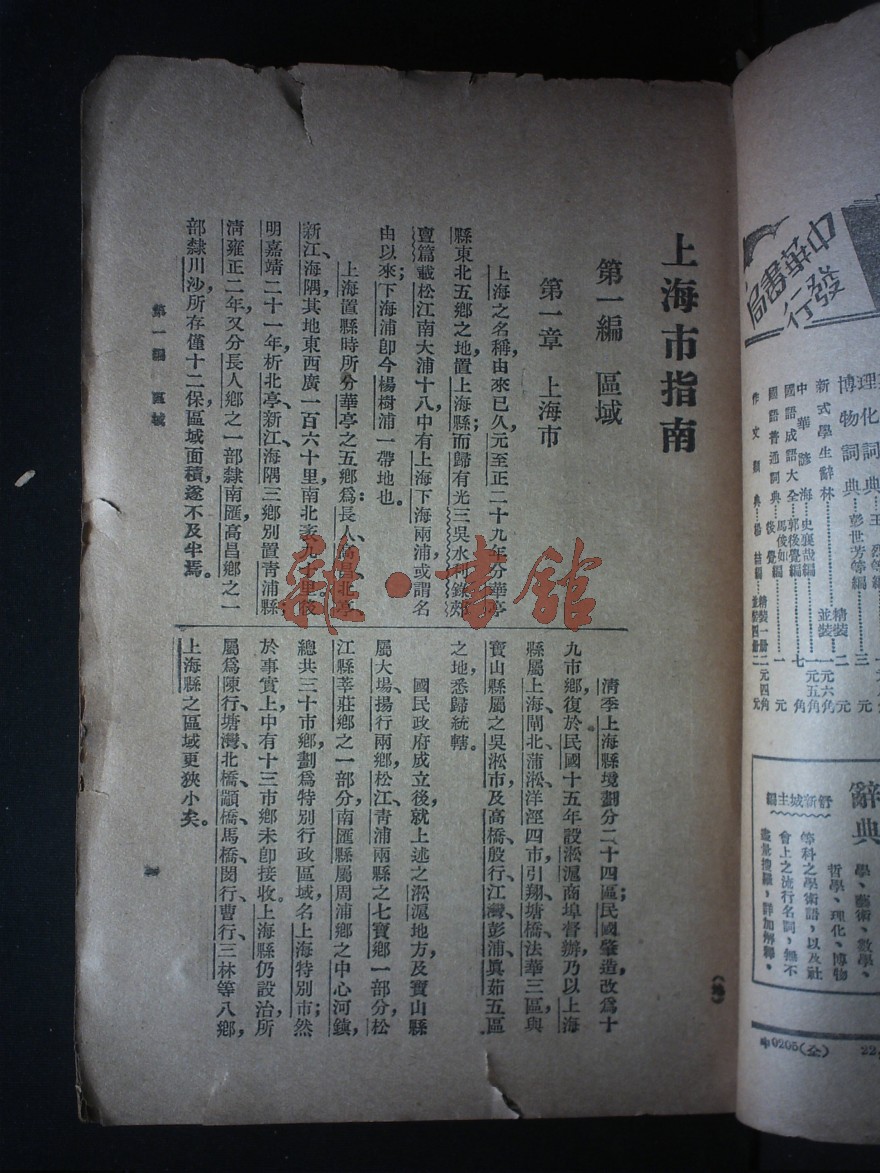 上海市指南
第一編 區域
第一章 上海市
上海之名稱由來已久，元至正二十九年，分華亭
縣東北五鄉之地置上海縣；而歸有光三吳水利錄郟
亶篇載松江南大浦十八，中有上海下海兩浦，或謂名
由以來；下海浦卽今楊樹浦一帶地也。
上海置縣時所分華亭之五鄉爲：長人、高昌、北亭、
新江、海隅，其地東西廣一百六十里，南北袤九十里，後
明嘉靖二十一年，析北亭、新江、海隅三鄉別置青浦縣；
清雍正二年，又分長人鄉之一部隸南匯，高昌鄉之一
部隸川沙，所存僅十二保，區域面積，遂不及半焉。
清季上海縣境劃分二十四區；民國肇造，改爲十
九市鄉，復於民國十五年設淞滬商埠督辦，乃以上海
縣屬上海、閘北、蒲淞、洋涇四市，引翔、塘橋、法華三區，與
寶山縣屬之吳淞市及高橋、殷行、江灣、彭浦、眞茹五區
之地，悉歸統轄。
國民政府成立後，就上述之淞滬地方及寶山縣
屬大場、揚行兩鄉，松江、青浦兩縣之七寶鄉一部分，松
江縣莘莊鄉之一部分，南匯縣屬周浦鄉之中心河鎮，
總共三十市鄉，劃爲特別行政區域，名上海特別市；然
於事實上，中有十三市鄉未卽接收。上海縣仍設治所
屬爲陳行、塘灣、北橋、顓橋、馬橋、閔行、曹行、三林等八鄉，
上海縣之區域更狹小矣。
第一編 區域
龍·書舘
中華書局
發行
理化詞典
博物詞典 彭世芳等編 三元
新式學生辭林 精裝 二元 並裝 一元六角
中華諺海 史襄哉編 一元五角
國語成語大全 郭後覺編 七角
國語普通詞典 馬俊如編 後覺 一元
作文類典
辭典
舒新城主編
學、藝術、數學、
哲學、理化、博物
等科之學術語，以及社
會上之流行名詞，無不
盡量搜羅，詳加解釋。
中0205(全) 22